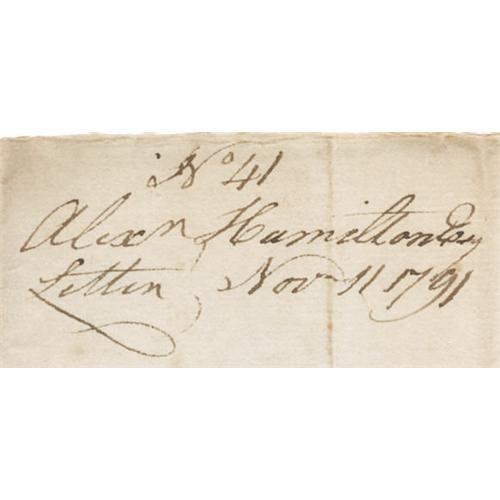 No 41
Alexr Hamilton Esq
Letter Nov 11 1791